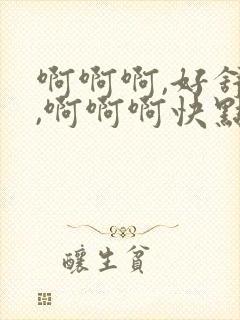 啊啊啊,好舒
,啊啊啊快點
釀生貧